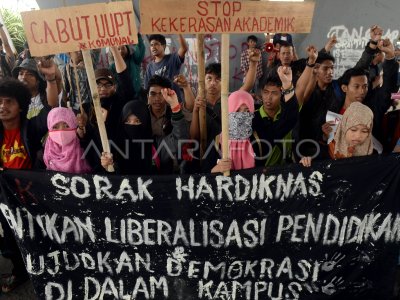 CABUT UUPT
KOMUNAL
STOP
KEKERASAN AKADEMIK
ANTARAFOTO
SORAK HARDIKNAS
LIBERALISASI PENDIDIKAN
UJUDKAN DEMOKRASI
DI DALAM KAMPUS